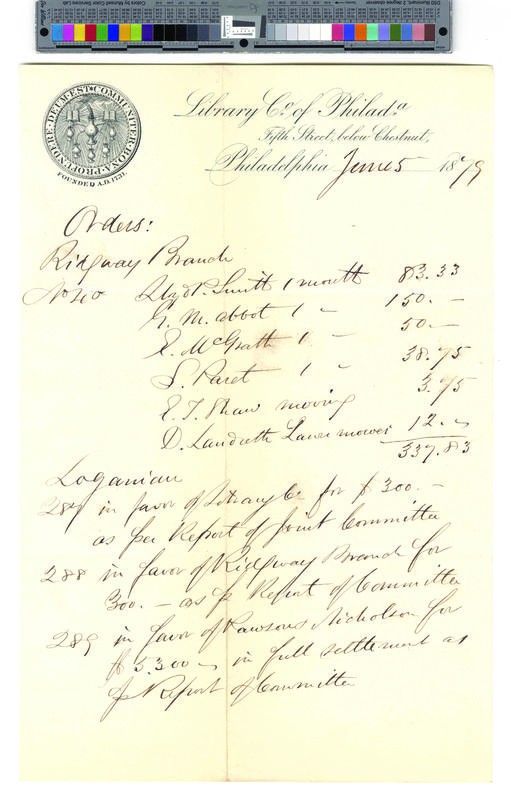 DEUM·EST·COMMUNITER·BONA·PROFUNDERE·
FOUNDED A.D. 1731.
Library Co. of Philada.
Fifth Street, below Chestnut,
Philadelphia June 5 1879
Orders:
Ridgway Branch
No 40 Lloyd P. Smith 1 month 83.33
G. M. abbot 1 " 150. —
E. McGrath 1 " 50. —
S. Paret 1 " 38.75
E. T. Shaw moving 3.75
D. Landreth Lawn mower 12. "
337.83
Loganian
287 in favor of Library Co for $ 300. —
as per Report of Joint Committee
288 in favor of Ridgway Branch for
300. — as p Report of Committee
289 in favor of Rawson & Nicholson for
$ 5.300 " in full settlement as
p Report of Committee